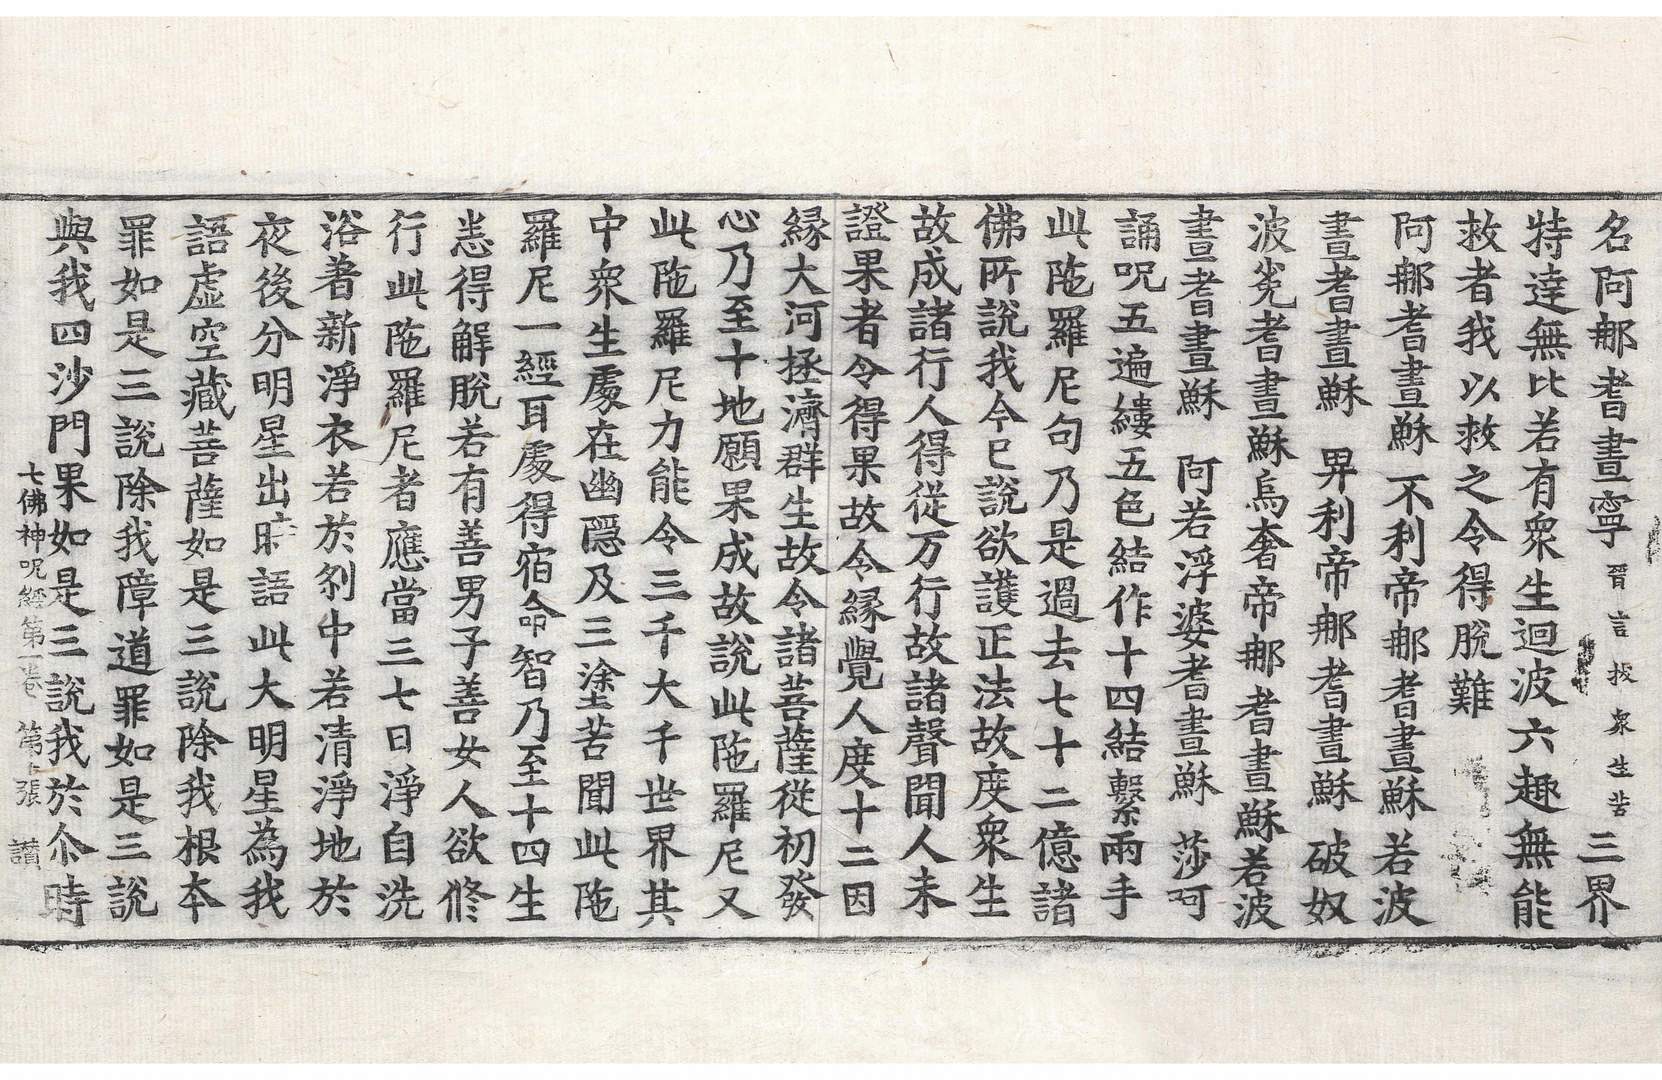 名阿𨚗耆晝寧晉言拔衆生苦三界
特達無比若有衆生迴波六趣無能
救者我以救之令得脫難
阿𨚗耆晝蘇 不利帝𨚗耆晝蘇 若波
晝耆晝蘇 畀利帝𨚗耆晝蘇 破奴
波㝹耆晝蘇烏奢帝𨚗耆晝蘇若波
晝耆晝蘇 阿若浮婆耆晝蘇 莎呵
誦呪五遍縷五色結作十四結繫兩手
此陁羅尼句乃是過去七十二億諸
佛所說我今已說欲護正法故度衆生
故成諸行人得從万行故諸聲聞人未
證果者令得果故令緣覺人度十二因
緣大河拯濟群生故令諸菩薩從初發
心乃至十地願果成故說此陁羅尼又
此陁羅尼力能令三千大千世界其
中衆生處在幽隱及三塗苦聞此陁
羅尼一經耳處得宿命智乃至十四生
恙得解脫若有善男子善女人欲修
行此陁羅尼者應當三七日淨自洗
浴著新淨衣若於剎中若清淨地於
夜後分明星出時語此大明星為我
語虛空藏菩薩如是三說除我根本
罪如是三說除我障道罪如是三說
與我四沙門果如是三說我於尒時
七佛神呪經第 卷 第 張 讃